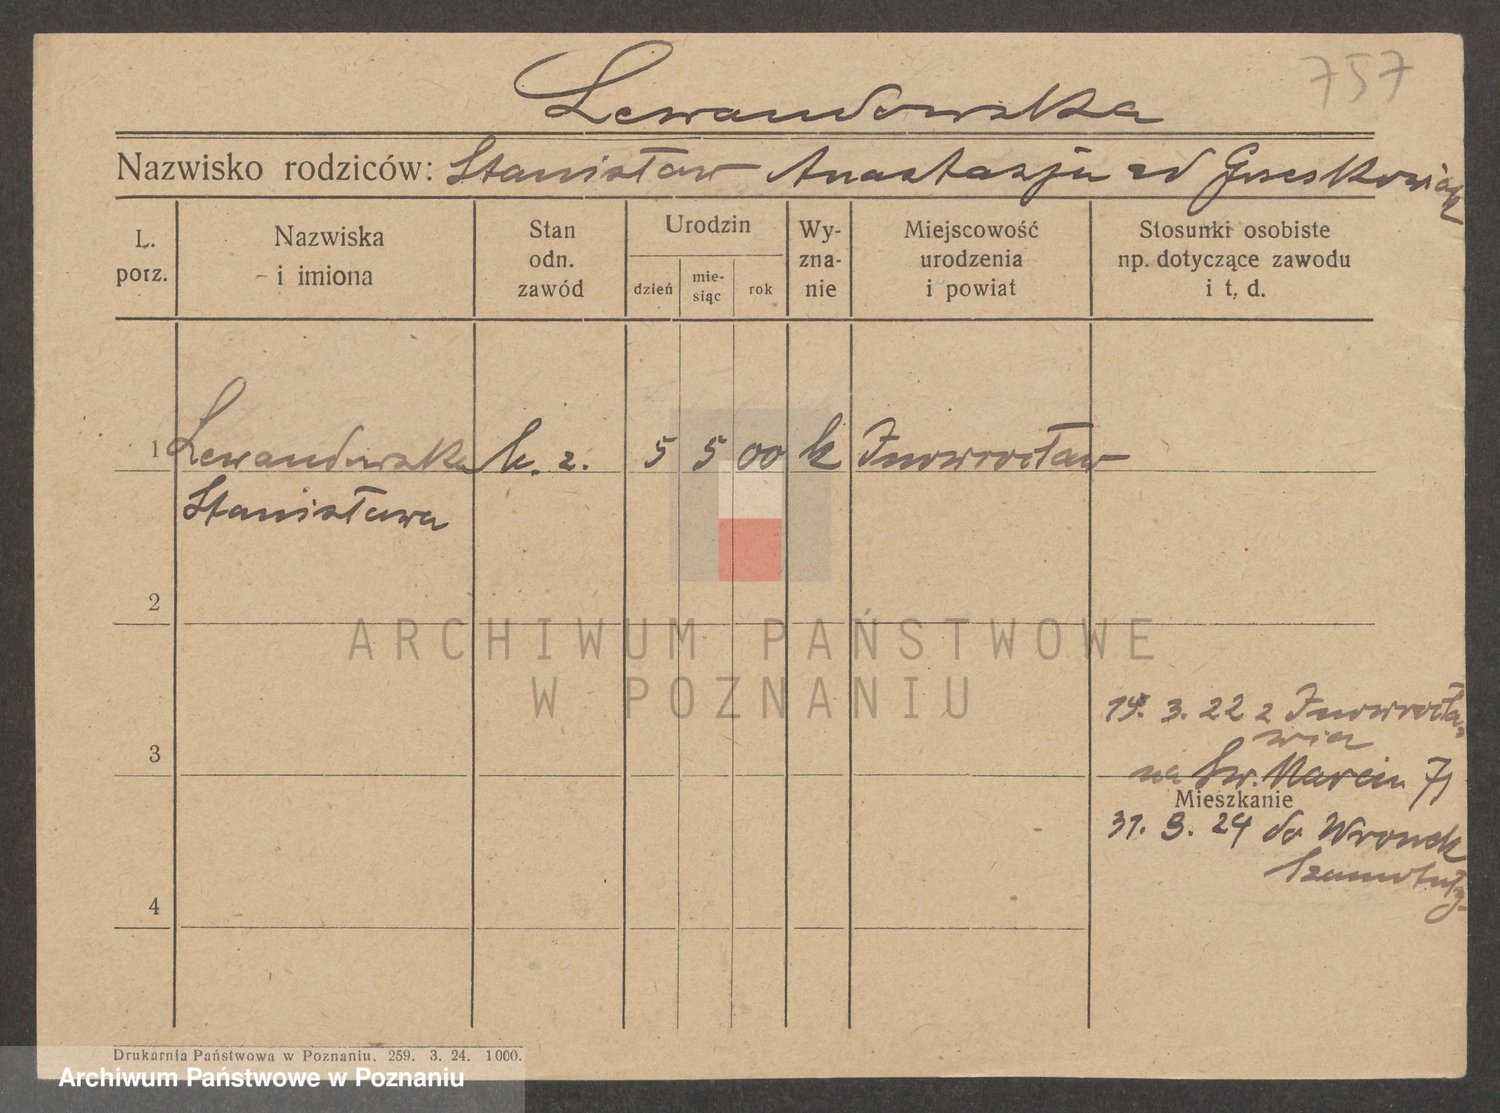 757
Lewandowska
Nazwisko rodziców: Stanisław Anastazja zd Grześkowiak
L. porz.
Nazwiska i imiona
Stan odn. zawód
Urodzin
dzień
mie-
siąc
rok
Wy-
zna-
nie
Miejscowość urodzenia i powiat
Stosunki osobiste
np. dotyczące zawodu
i t. d.
1 Lewandowska k. z. 5 5 00 k Inowrocław
Stanisława
2
ARCHIWUM PAŃSTWOWE
W POZNANIU
3
3. 22 z Inowrocła-
wia
na Św. Marcin
Mieszkanie
31. 24 do Wronek
Szamotuły
4
Drukarnia Państwowa w Poznaniu. 259. 3. 24. 1000.
Archiwum Państwowe w Poznaniu